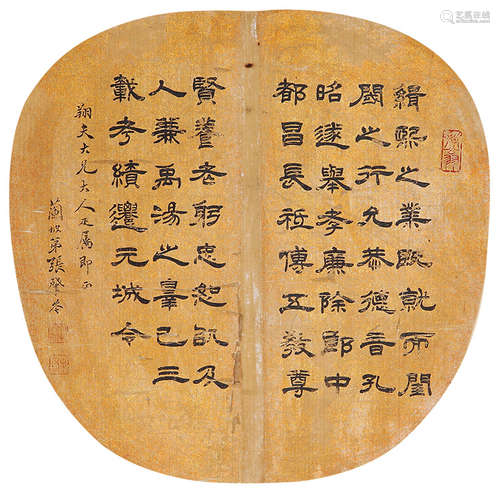 緝熙之業既就而閨
閾之行允恭德音孔
昭遂舉孝廉除郎中
都昌長祗傅五教尊
賢養老躬忠恕以及
人兼禹湯之辠己三
載考績遷元城令
翔夫大兄大人疋属即正
蘭坡弟張肇岑
艺狐在线